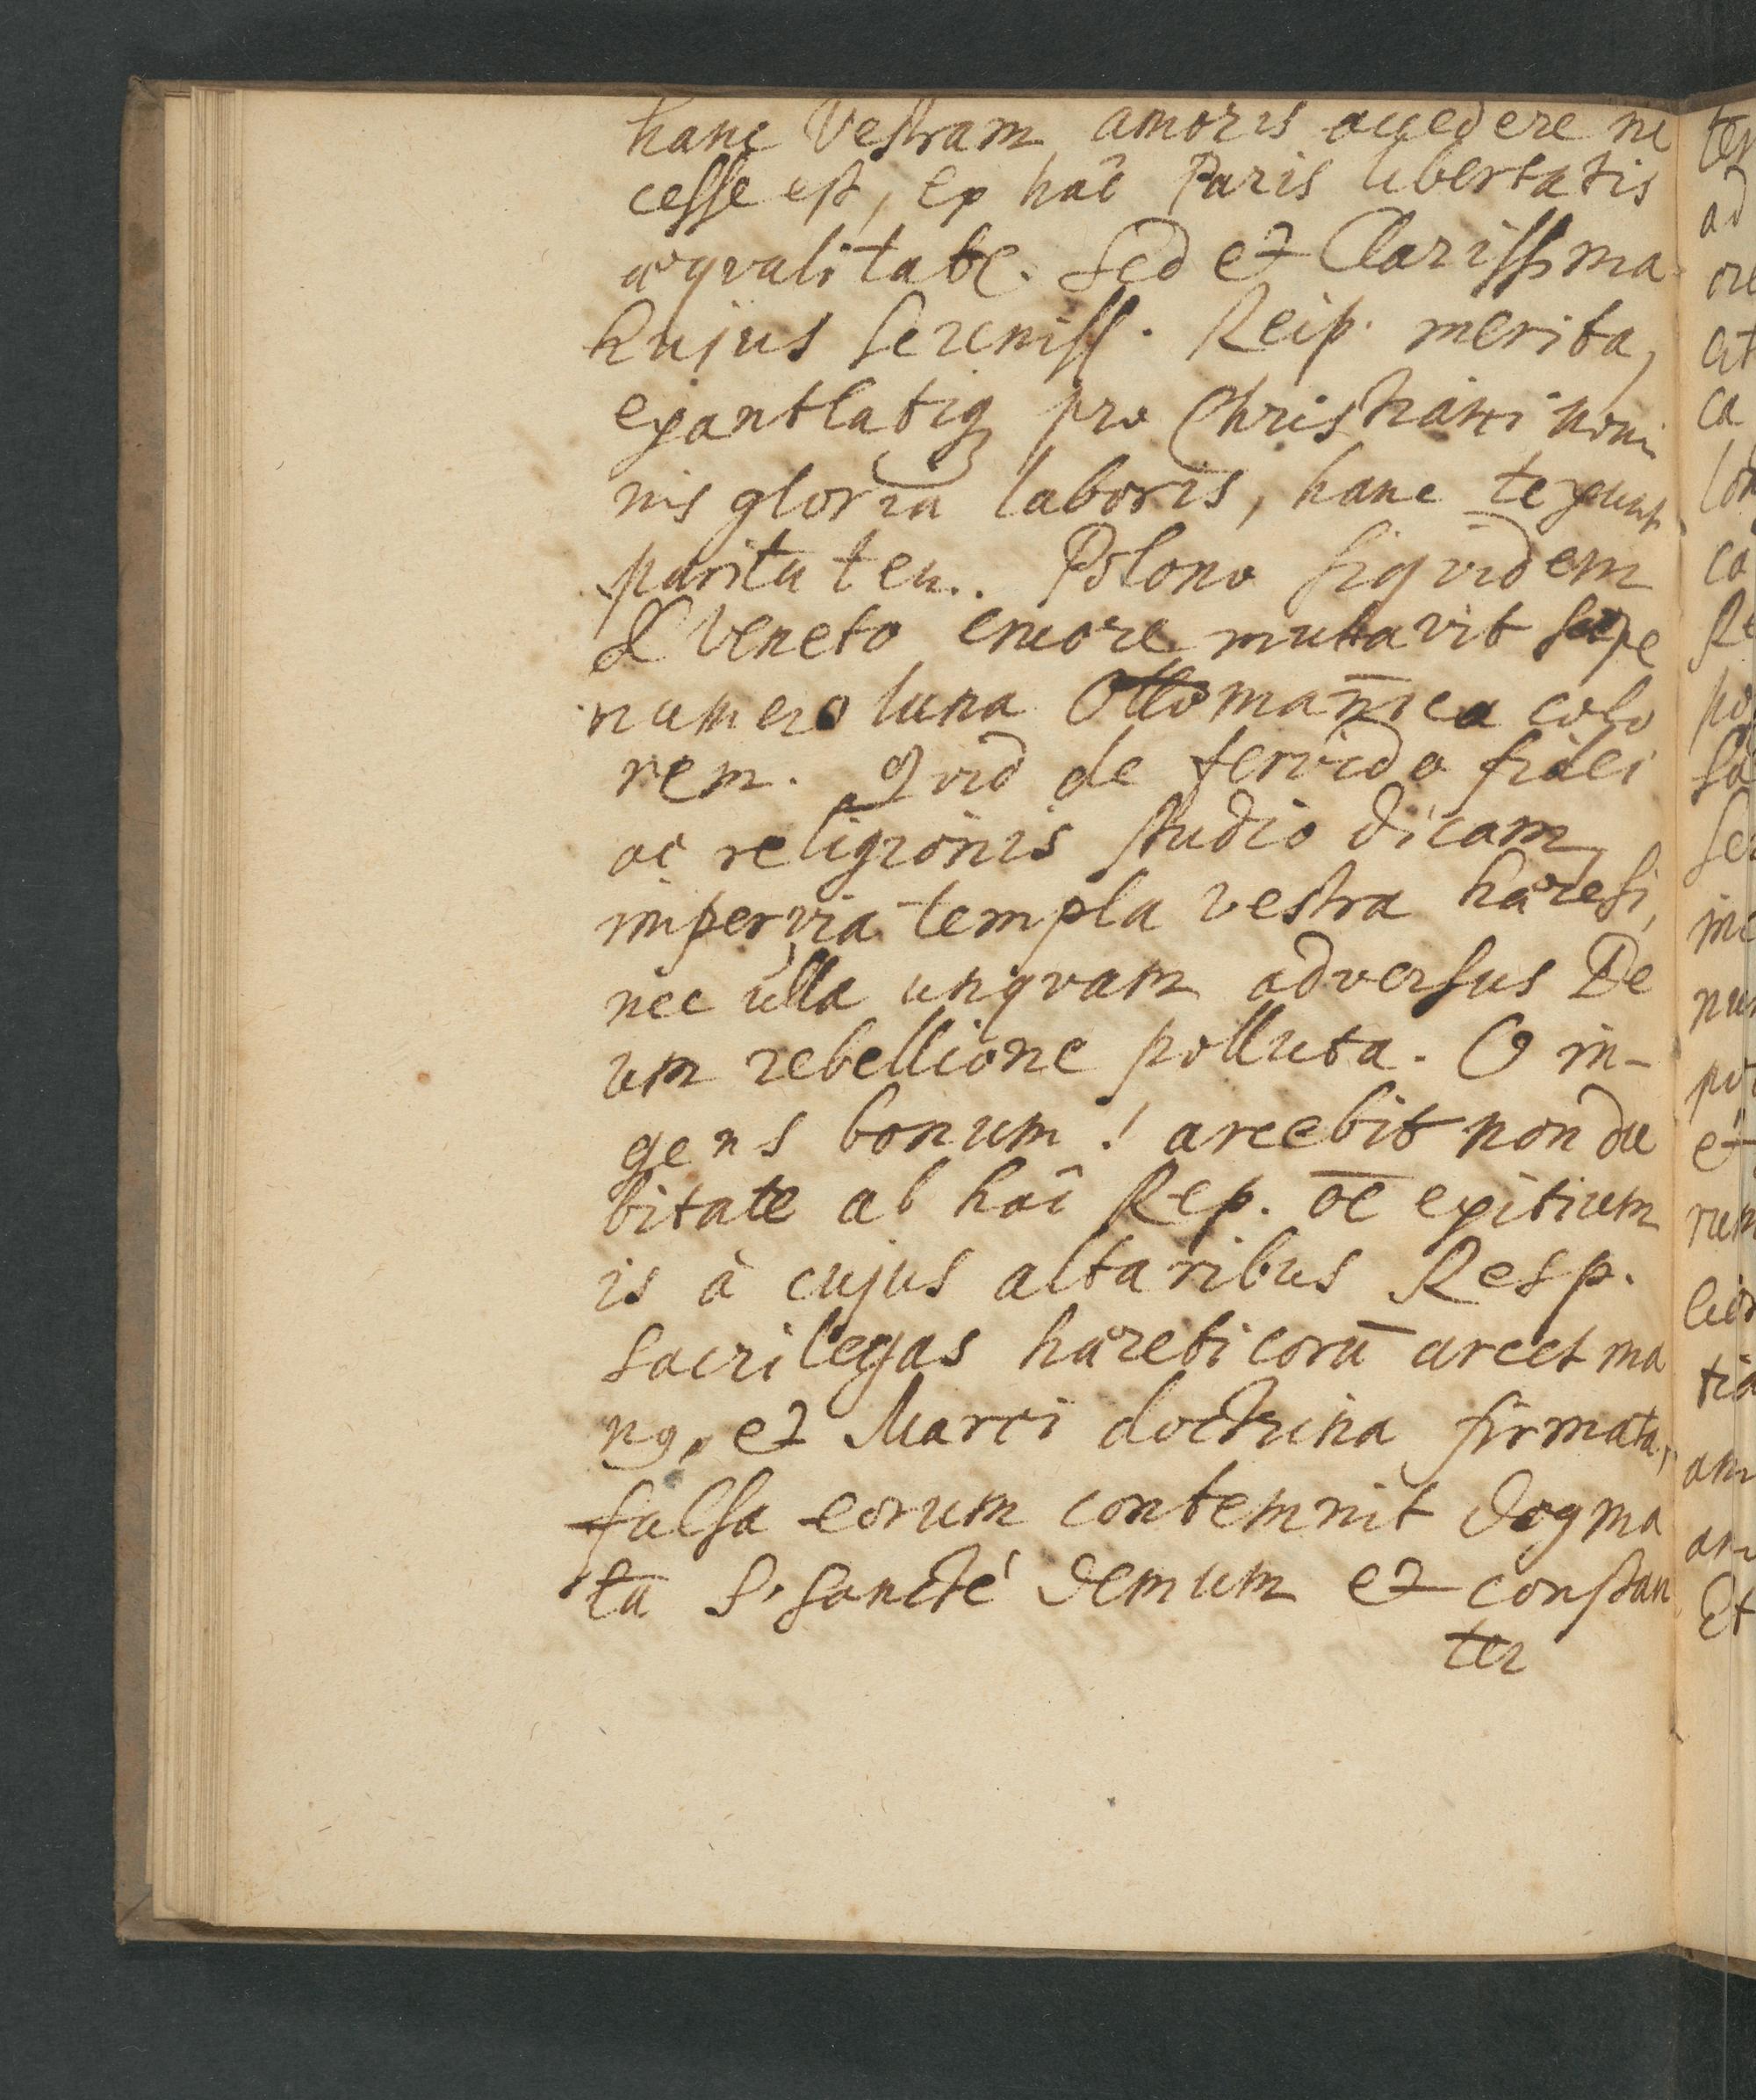 hanc Vestram amoris accedere ne
cesse est, ex hâc Paris libertatis
æqvalitate. Sed et Clarissima
hujus Sereniss. Reip. merita,
exantlatiq pro Christiani nomi
nis gloria laboris, hanc texunt
paritatem. Polono siqvidem
& Veneto cruore mutavit sæpe
numero luna Ottomanica colo
rem. Qvid de fervido fidei
ac religionis studio dicam,
impervia templa vestra hæresi,
nec ulla unqvam adversus De
um rebellione polluta. O in-
gens bonum! arcebit non du
bitate ab hâc Rep. oē exitium
is à cujus altaribus Resp.
Sacrilegas hæreticorū arcet ma
ng, et Marci doctrina firmata,
falsa eorum contemnit dogma
ta S. Sancté demum et constan
ter